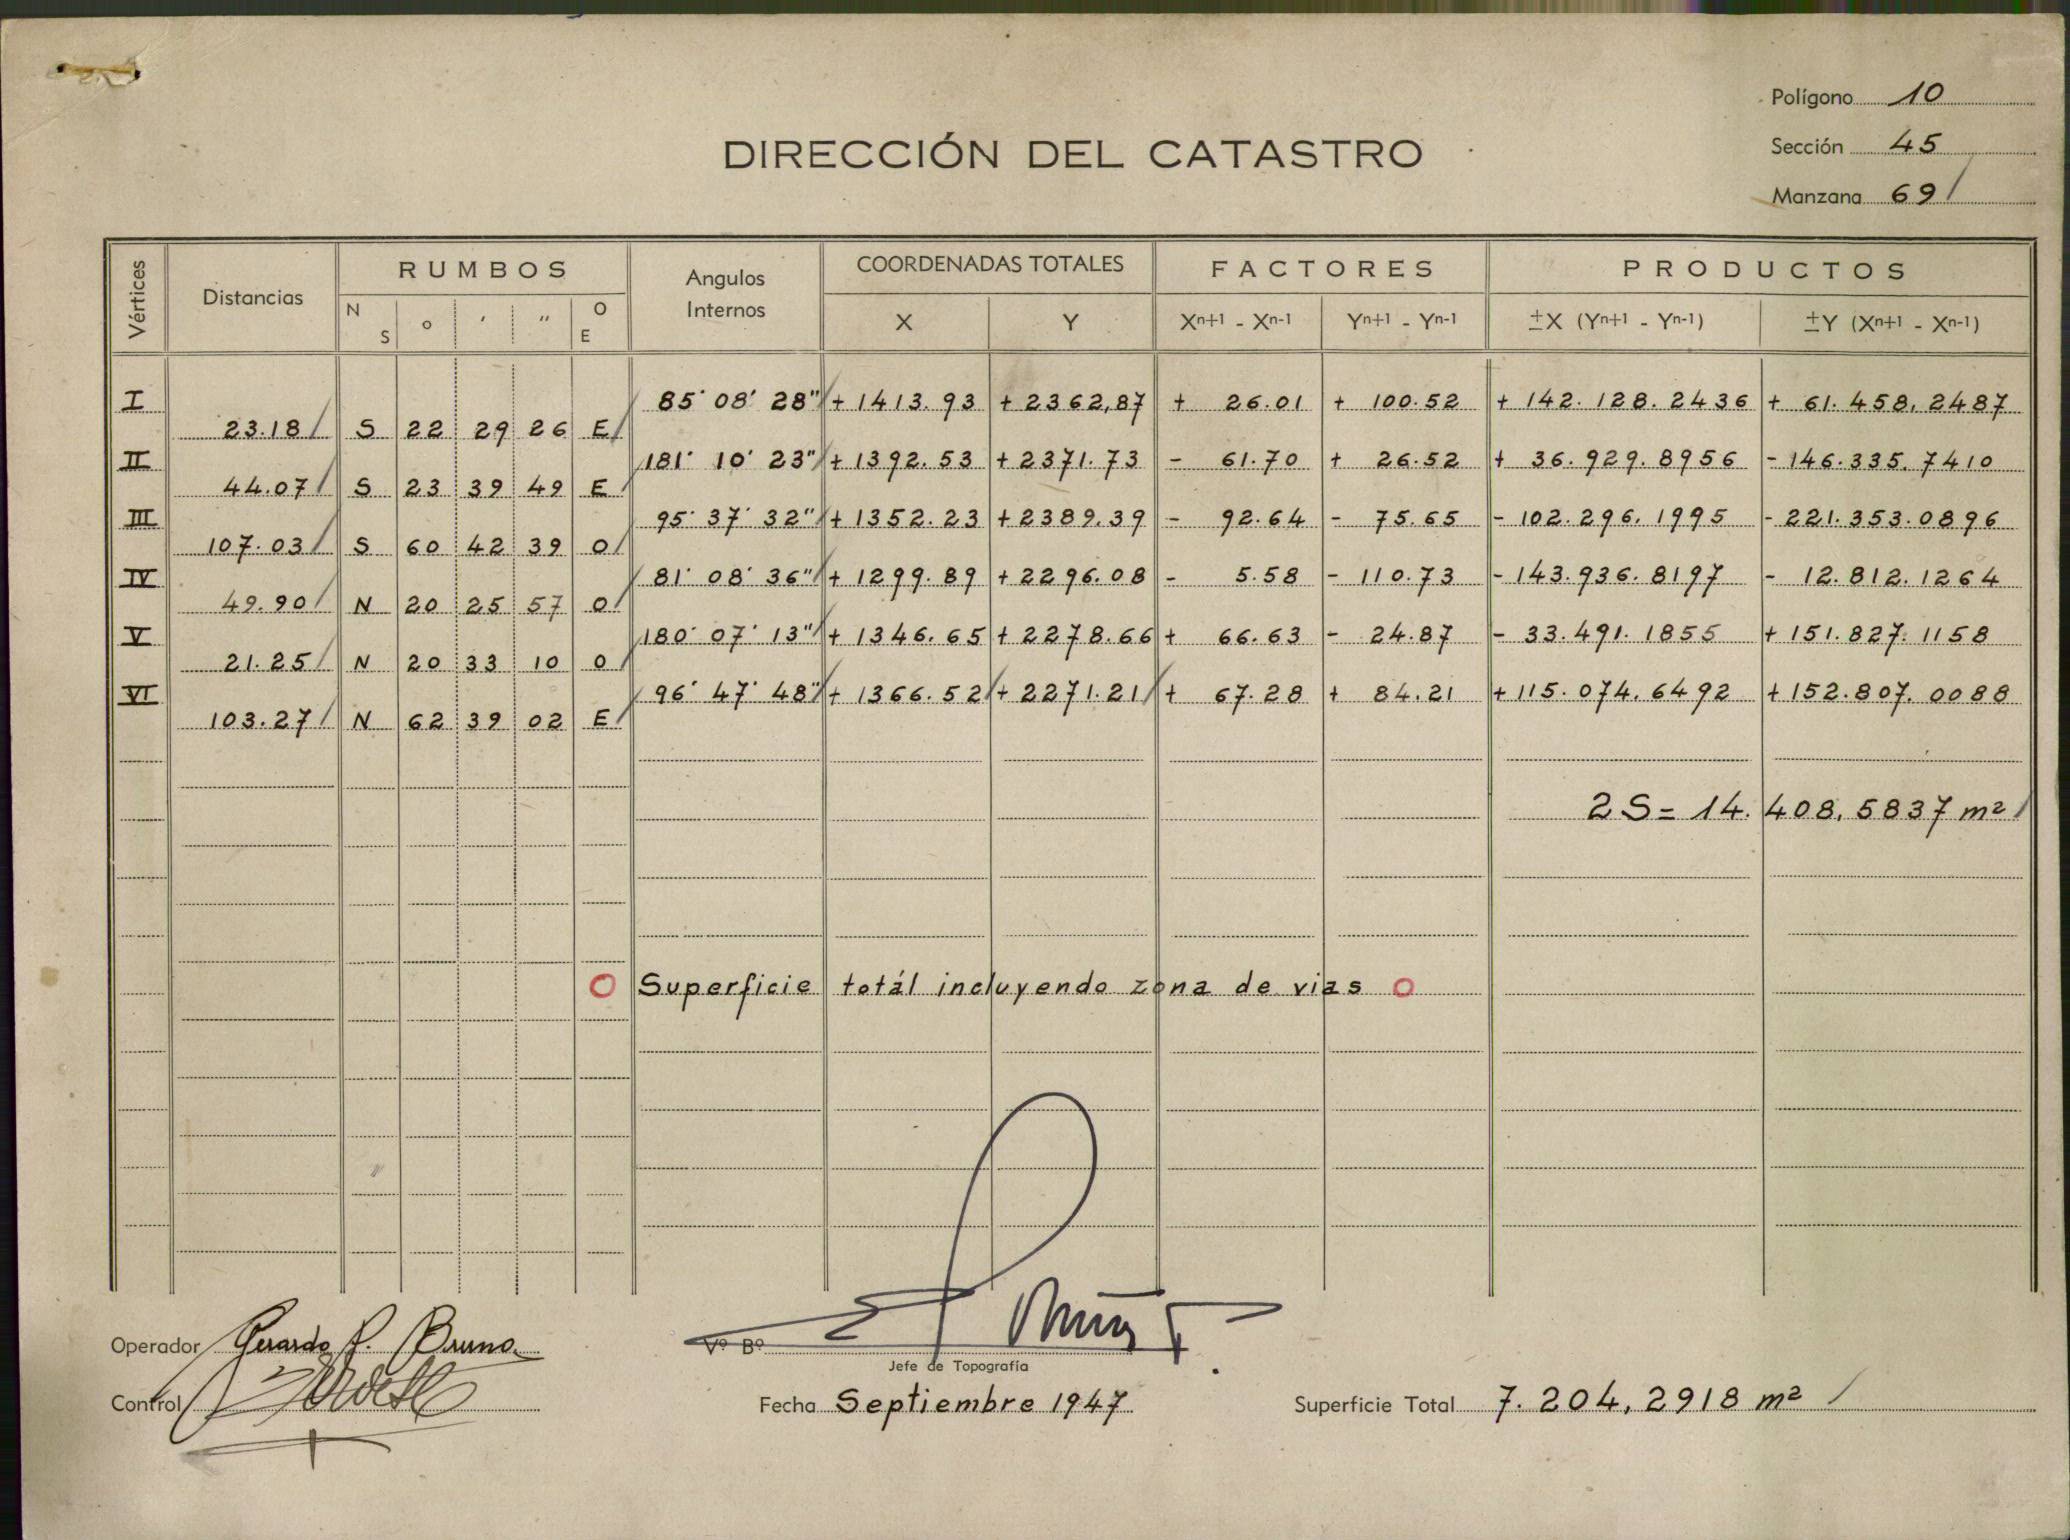 Polígono 10
DIRECCIÓN DEL CATASTRO
Sección 45
Manzana 69
Vértices Distancias RUMBOS Angulos Internos COORDENADAS TOTALES FACTORES PRODUCTOS
N S o ' " O E X Y Xn+1 - Xn-1 Yn+1 - Yn-1 ±X (Yn+1 - Yn-1) ±Y (Xn+1 - Xn-1)
I 85° 08' 28" + 1413.93 + 2362,87 + 26.01 + 100.52 + 142.128.2436 + 61.458,2487
23.18 S 22 29 26 E
II 181° 10' 23" + 1392.53 + 2371.73 - 61.70 + 26.52 + 36.929.8956 - 146.335.7410
44.07 S 23 39 49 E
III 95° 37' 32" + 1352.23 + 2389.39 - 92.64 - 75.65 - 102.296.1995 - 221.353.0896
107.03 S 60 42 39 O
IV 81° 08' 36" + 1299.89 + 2296.08 - 5.58 - 110.73 - 143.936.8197 - 12.812.1264
49.90 N 20 25 57 O
V 180° 07' 13" + 1346.65 + 2278.66 + 66.63 - 24.87 - 33.491.1855 + 151.827.1158
21.25 N 20 33 10 O
VI 96° 47' 48" + 1366.52 + 2271.21 + 67.28 + 84.21 + 115.074.6492 + 152.807.0088
103.27 N 62 39 02 E
2S = 14.408,5837 m²
O Superficie totál incluyendo zona de vias O
Operador Gerardo P. Bruno
Vº Bº
Jefe de Topografía
Control
Fecha Septiembre 1947
Superficie Total 7.204,2918 m²